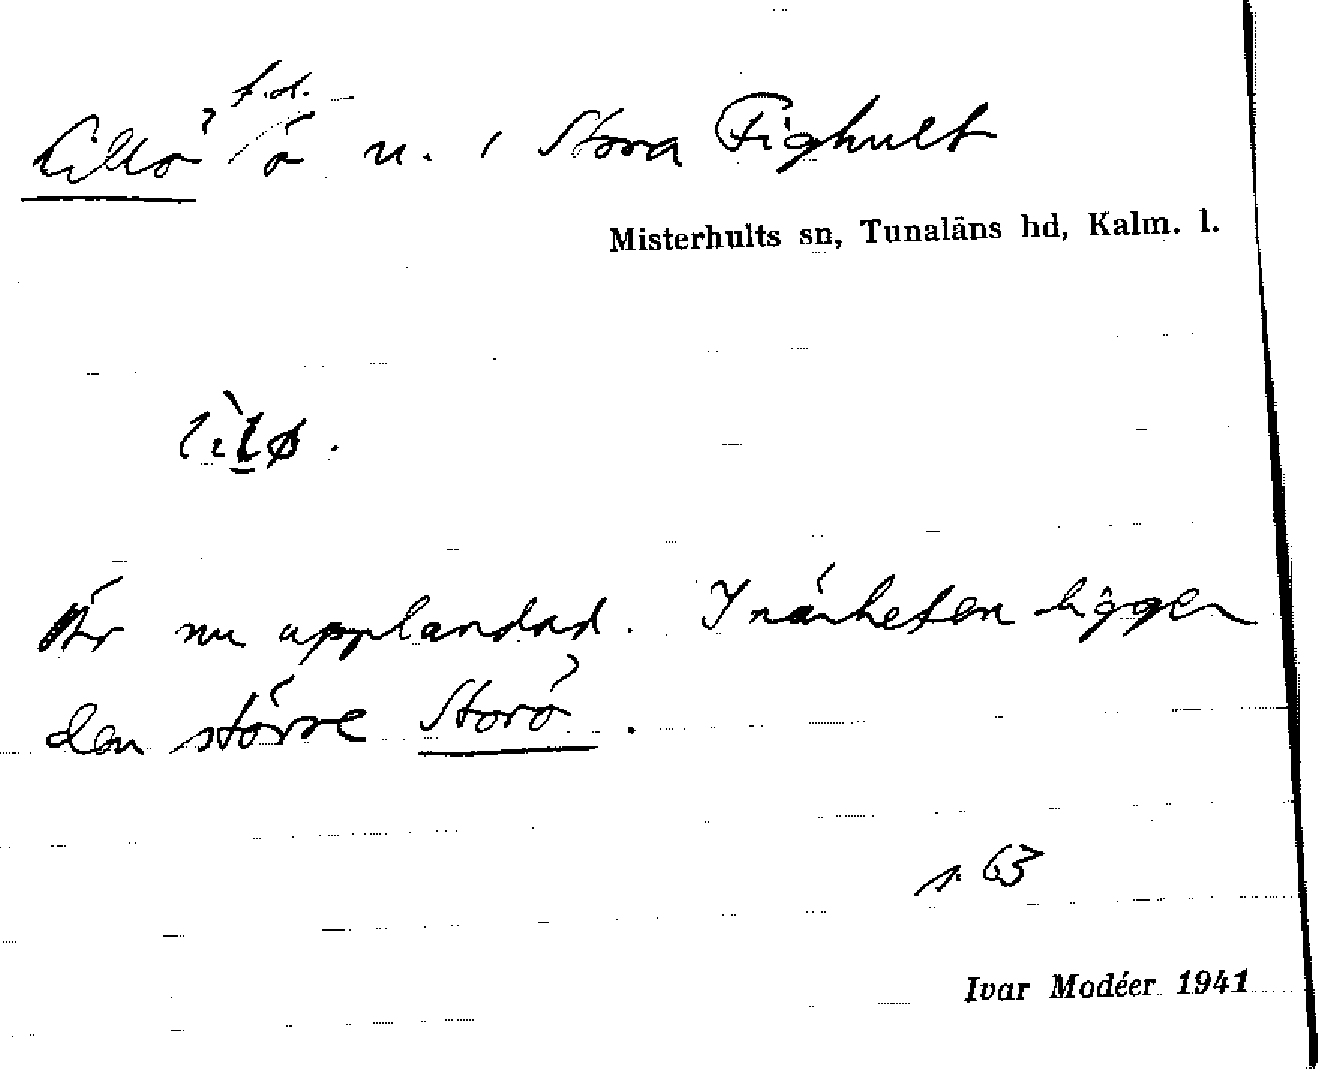 f.d.
Lillö ö u. i Stora Fighult
Misterhults sn, Tunaläns hd, Kalm. l.
Är nu upplandad. I närheten ligger
den större Storö.
s. 63
Ivar Modéer 1941